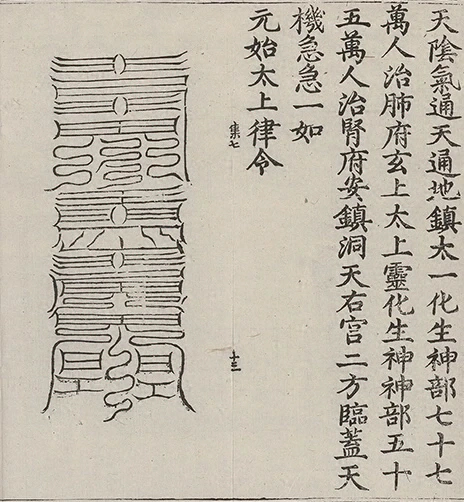 天陰氣通天通地鎮太一化生神部七十七
萬人治肺府玄上太上靈化生神神部五十
五萬人治腎府安鎮洞天右宮二方臨蓋天
機急急一如
元始太上律令
集七
十三